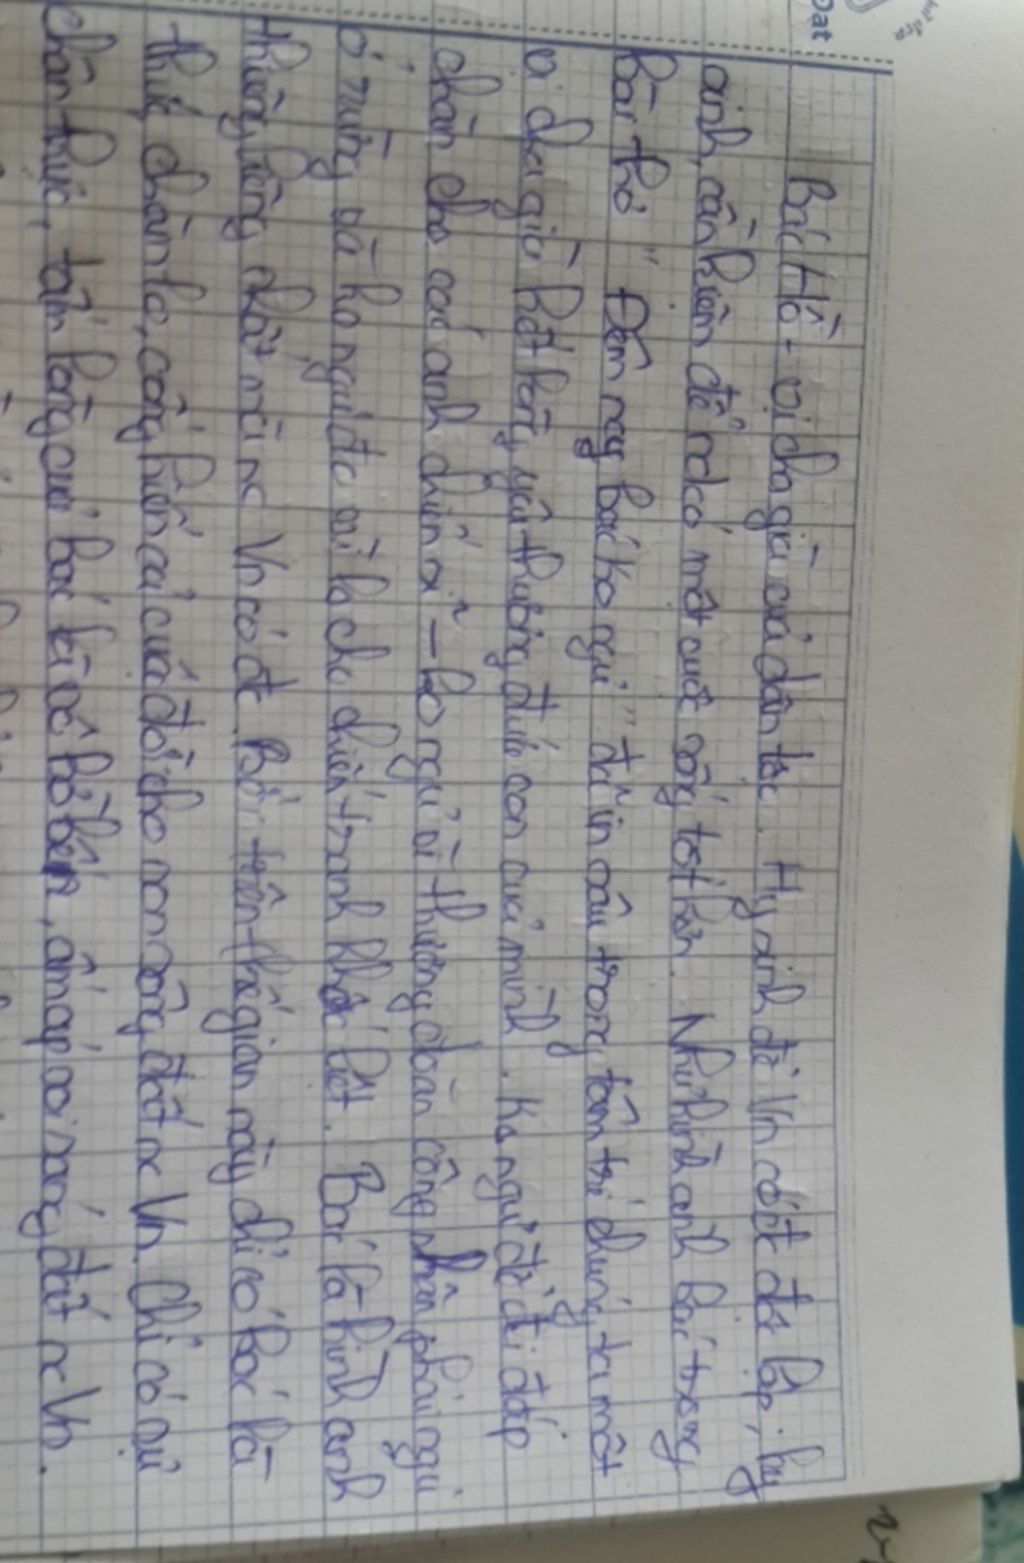 Bác Hồ - vị cha già của dân tộc. Hy sinh để Vn có đc độc lập, hy
sinh, cần kiệm để nd có một cuộc sống tốt hơn. Như hình ảnh bác trong
bài thơ " Đêm nay bác ko ngủ" đã in sâu trong tâm trí chúng ta một
vị cha già hết lòng yêu thương đứa con của mình. Ko ngủ để đi đắp
chăn cho các anh chiến sĩ - ko ngủ vì thương đoàn công nhân phải ngủ
ở rừng và ko ngủ đc vì lo cho chiến tranh khốc liệt. Bác là hình ảnh
thiêng liêng nhất mà nc Vn có đc. Bởi trên thế gian này chỉ có bác là
thức chăm lo, cống hiến cả cuộc đời cho non sông, đất nc Vn. Chỉ có sự
chân thực, tấm lòng của bác là còn, ấm áp soi sáng đất nc Vn.
Đạt